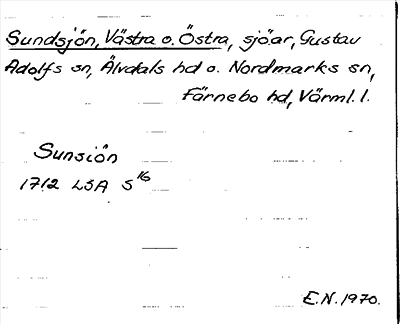 Sundsjön, Västra o. Östra, sjöar, Gustav
Adolfs sn, Älvdals hd o. Nordmarks sn,
Färnebo hd, Värml. l.
Sunsiön
1712 LSA S16
E.N. 1970.